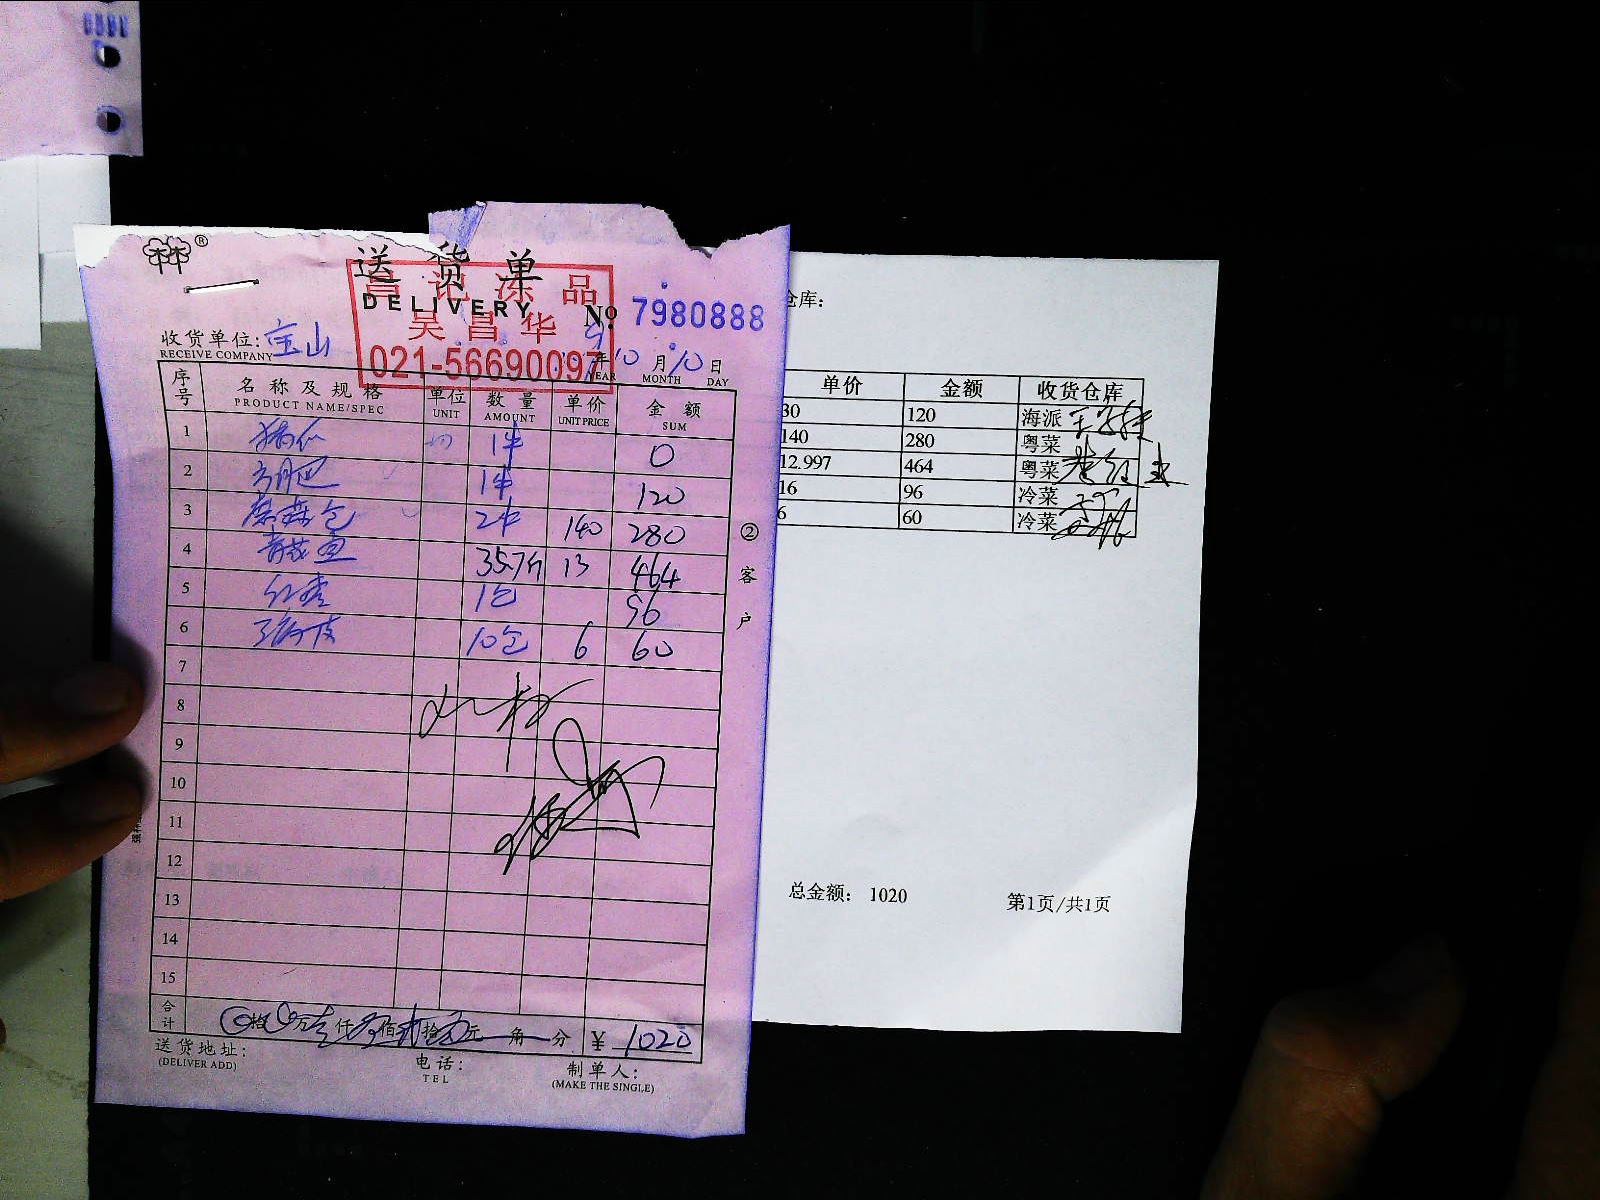 送货单
DELIVERY
昌记冻品
吴昌华
021-56690097
No. 7980888
收货单位: 宝山
RECEIVE COMPANY
年 10 月 10 日
YEAR MONTH DAY
序号 名称及规格 单位 数量 单价 金额
PRODUCT NAME/SPEC UNIT AMOUNT UNIT PRICE SUM
1 1件 0
2 1件 120
3 2件 140 280
4 35.7斤 13 464
5 红枣 1包 96
6 10包 6 60
7
8
9
10
11
12
13
14
15
合计 拾 万 仟 佰 拾 元 角 分 ¥ 1020
送货地址: 电话: 制单人:
(DELIVER ADD) TEL (MAKE THE SINGLE)
②客户
仓库:
单价 金额 收货仓库
30 120 海派
140 280 粤菜
12.997 464 粤菜
16 96 冷菜
6 60 冷菜
总金额: 1020 第1页/共1页